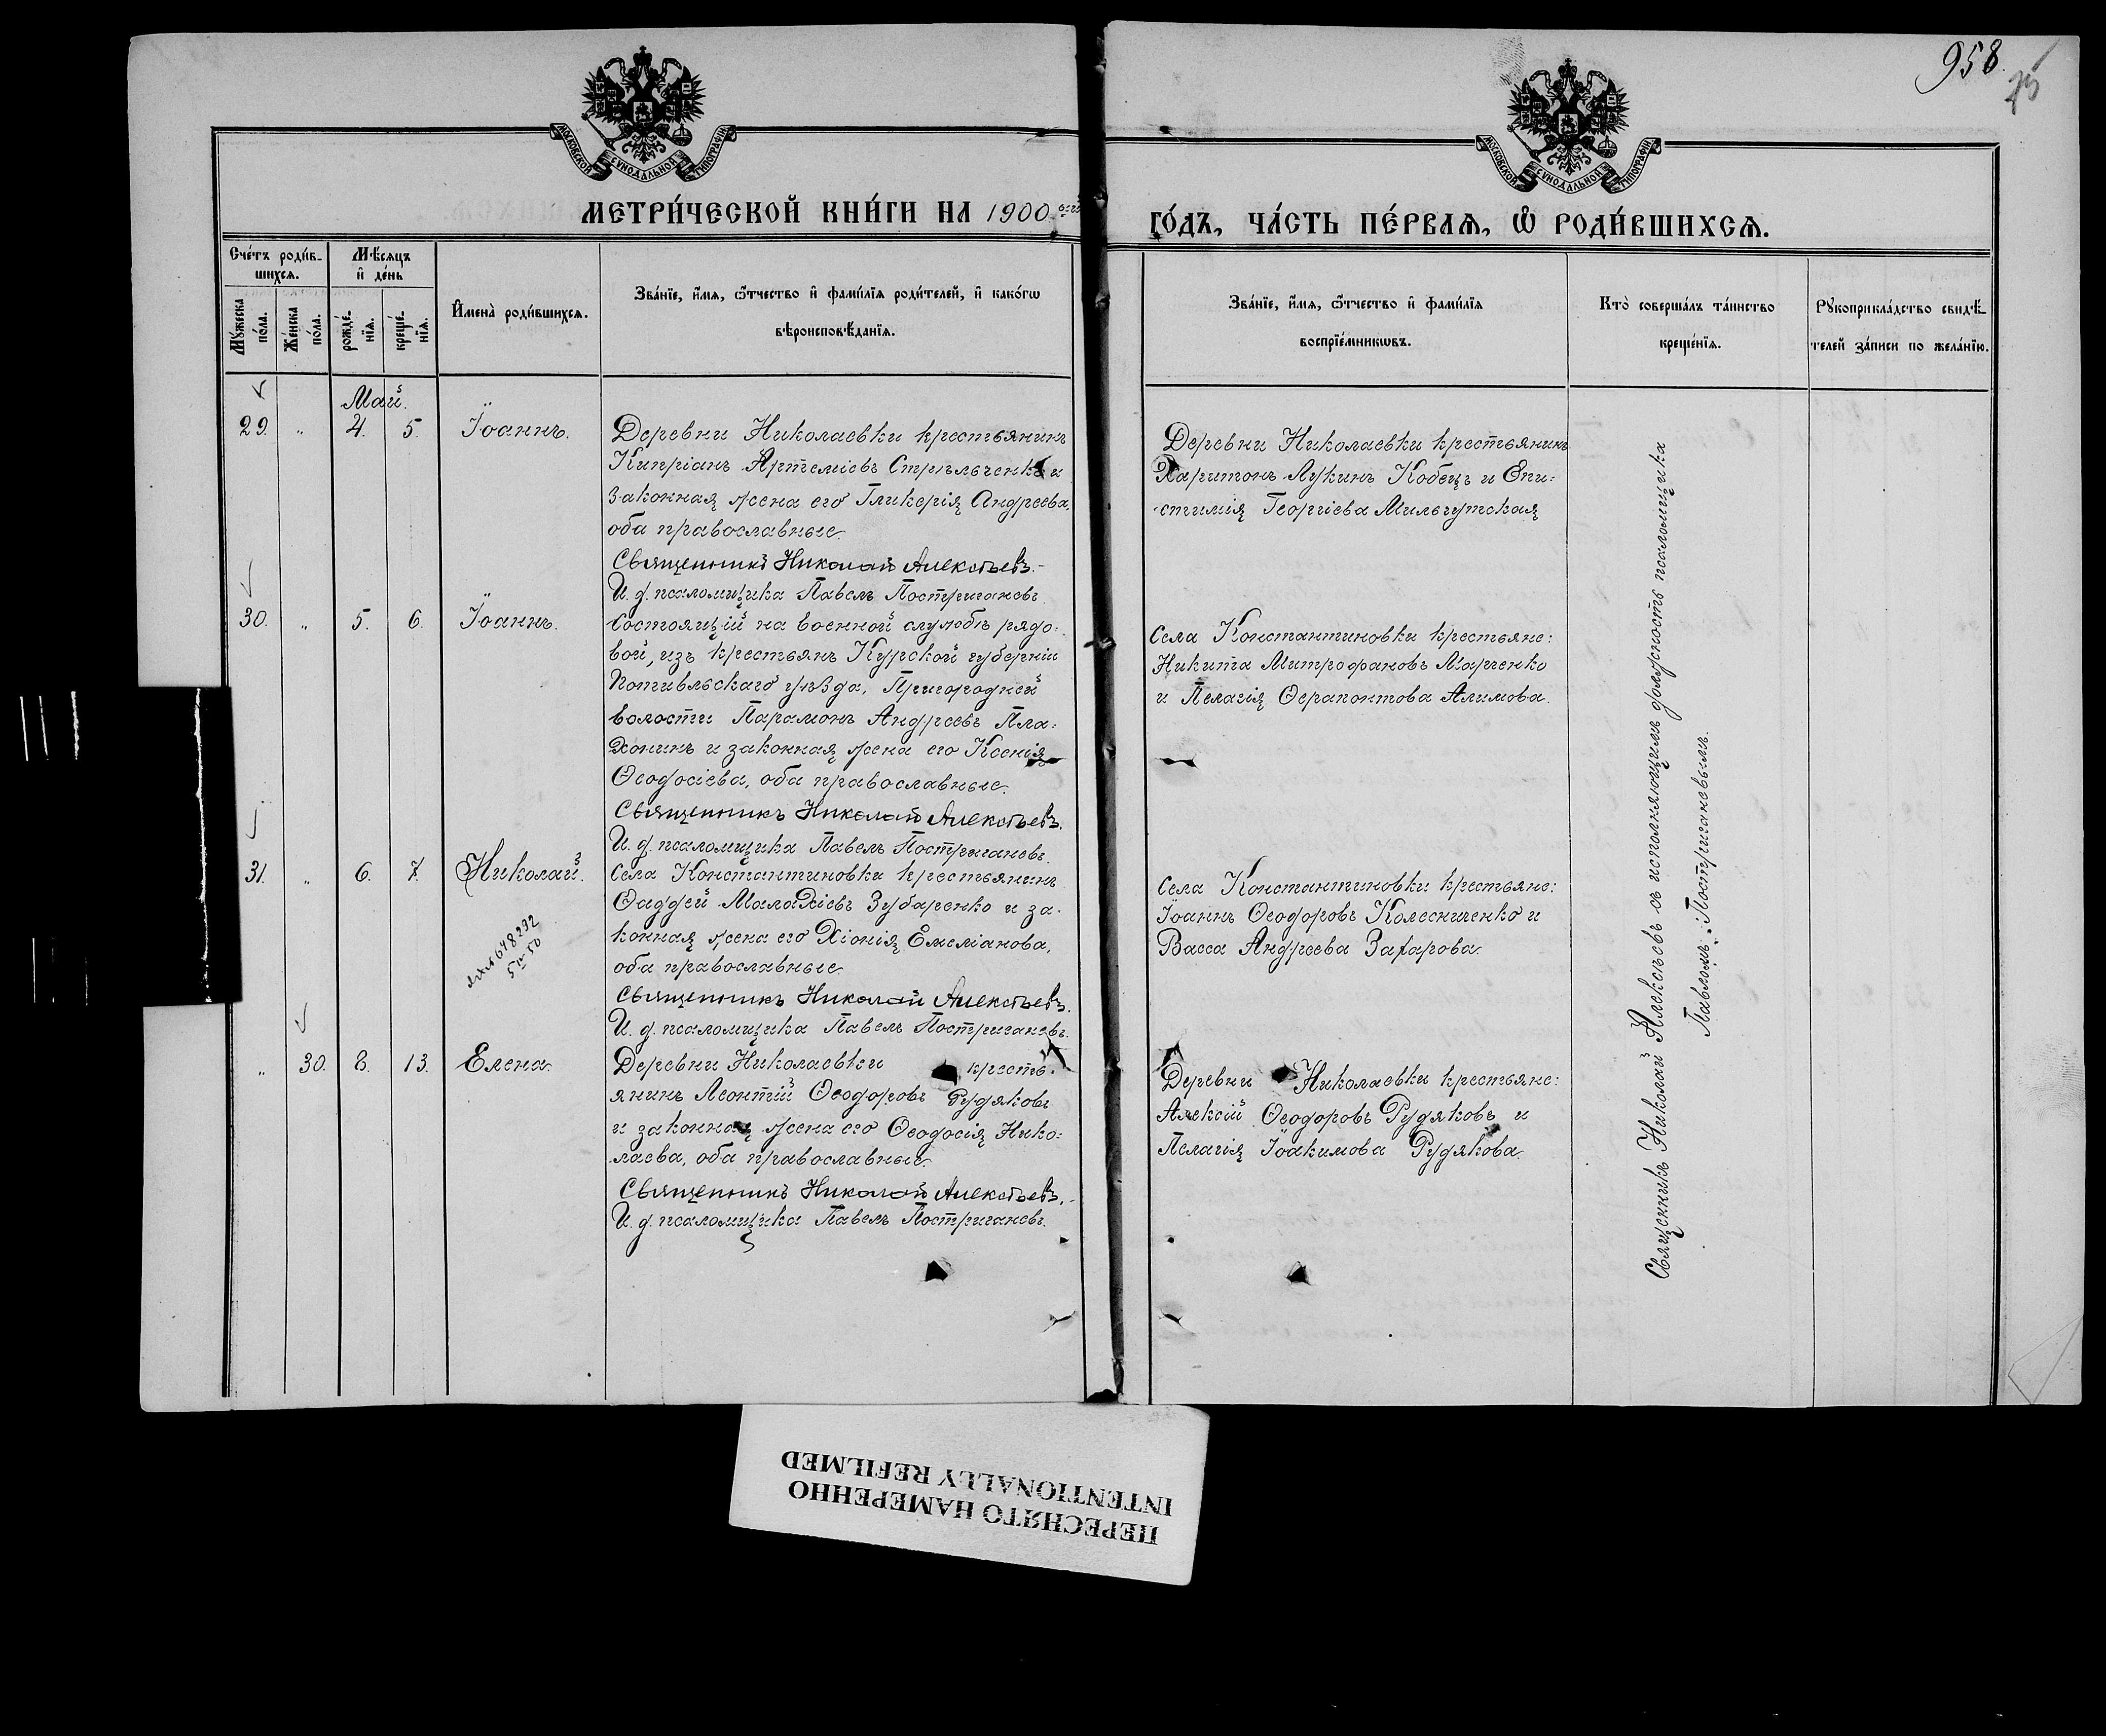 958.
МОСКОВСКОЙ СУНОДАЛЬНОЙ ТИПОГРАФІИ
МОСКОВСКОЙ СУНОДАЛЬНОЙ ТИПОГРАФІИ
МЕТРИ́ЧЕСКОЙ КНИ́ГИ НА 1900
ГО́ДЪ, ЧА́СТЬ ПЕ́РВАѦ, Ѽ РОДИ́ВШИХСѦ.
Сче́тъ роди́в-
шихся.
Мѣсяцъ
и̂ де́нь
Мꙋжеска
по́ла.
Же́нска
по́ла.
рожде́-
нїя.
креще́-
нїя.
И̂мена̀ роди́вшихся.
Зва́нїе, и̂́мя, ѻ҆́тчество и̂ фами́лїя роди́телей, и̂ како́гѡ
вѣроисповѣ́данїя.
Зва́нїе, и̂́мя, ѻ҆́тчество и̂ фами́лїя
воспрїе́мникѡвъ.
Кто̀ соверша́лъ та́инство
креще́нїя.
Рꙋкоприкла́дство свидѣ́-
телей за́писи по жела́нїю.
Май.
29. „ 4. 5. Іоаннъ.
Деревни Николаевки крестьянинъ
Кипріанъ Артеміевъ Стрѣльченко и
законная жена его Гликерія Андреева,
оба православные.
Священникъ Николай Алексѣевъ.
И. д. псаломщика Павелъ Постригановъ.
Деревни Николаевки крестьянинъ
Харитонъ Лукинъ Кобецъ и Епи-
стимія Георгіева Мильгутская
30. „ 5. 6. Іоаннъ.
Состоящій на военной службѣ рядо-
вой, изъ крестьянъ Курской губерніи
Потивльскаго уѣзда, Пригородней
волости Парамонъ Андреевъ Пла-
хонинъ и законная жена его Ксенія
Ѳеодосіева, оба православные.
Священникъ Николай Алексѣевъ.
И. д. псаломщика Павелъ Постригановъ.
Села Константиновки крестьяне:
Никита Митрофановъ Марченко
и Пелагія Ѳерапонтова Алимова.
31. „ 6. 7. Николай.
5 50
Села Константиновки крестьянинъ
Ѳаддей Малахіевъ Зубаренко и за-
конная жена его Хіонія Емеліанова,
оба православные.
Священникъ Николай Алексѣевъ.
И. д. псаломщика Павелъ Постригановъ.
Села Константиновки крестьяне:
Іоаннъ Ѳеодоровъ Колесниченко и
Васса Андреева Захарова.
„ 30. 8. 13. Елена.
Деревни Николаевки кресть-
янинъ Леонтій Ѳеодоровъ Рудяковъ
и законная жена его Ѳеодосія Нико-
лаева, оба православные.
Священникъ Николай Алексѣевъ.
И. д. псаломщика Павелъ Постригановъ.
Деревни Николаевки крестьяне:
Алексій Ѳеодоровъ Рудяковъ и
Пелагія Іоакимова Рудякова.
Священникъ Николай Алексѣевъ съ исполняющимъ должность псаломщика
Павломъ Постригановымъ.
ПЕРЕСНЯТО НАМЕРЕННО
INTENTIONALLY REFILMED